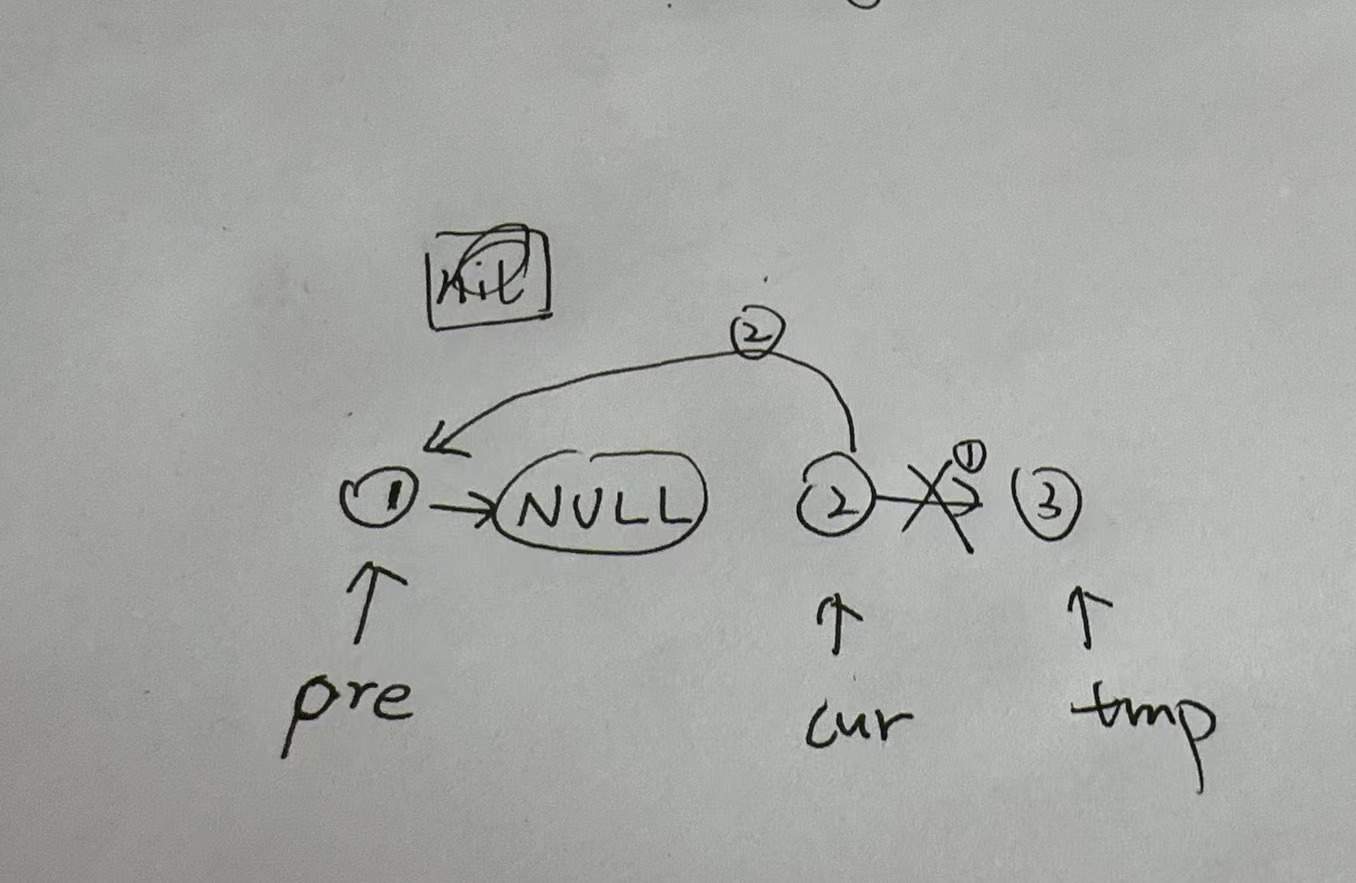 nil
②
① → NULL ② → ① ③
pre cur tmp